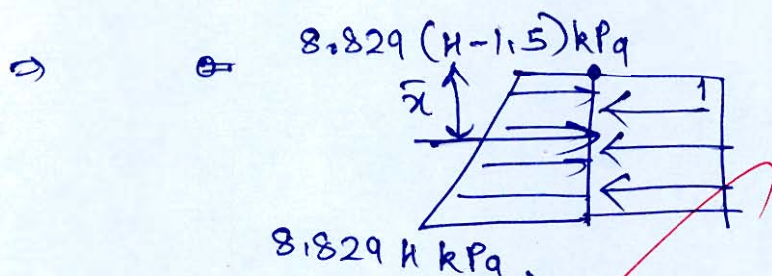 ⇒ 8.829 (H-1.5) kPa
x̄
1
8.829 H kPa.